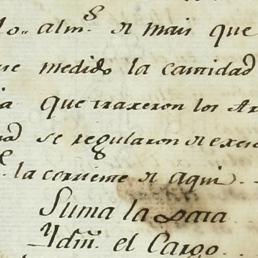 alm.s de mais que
medido la cantidad
que traxeron los
se regularon de
la corriente de aqui
Suma la data
Ydm̃ el Cargo